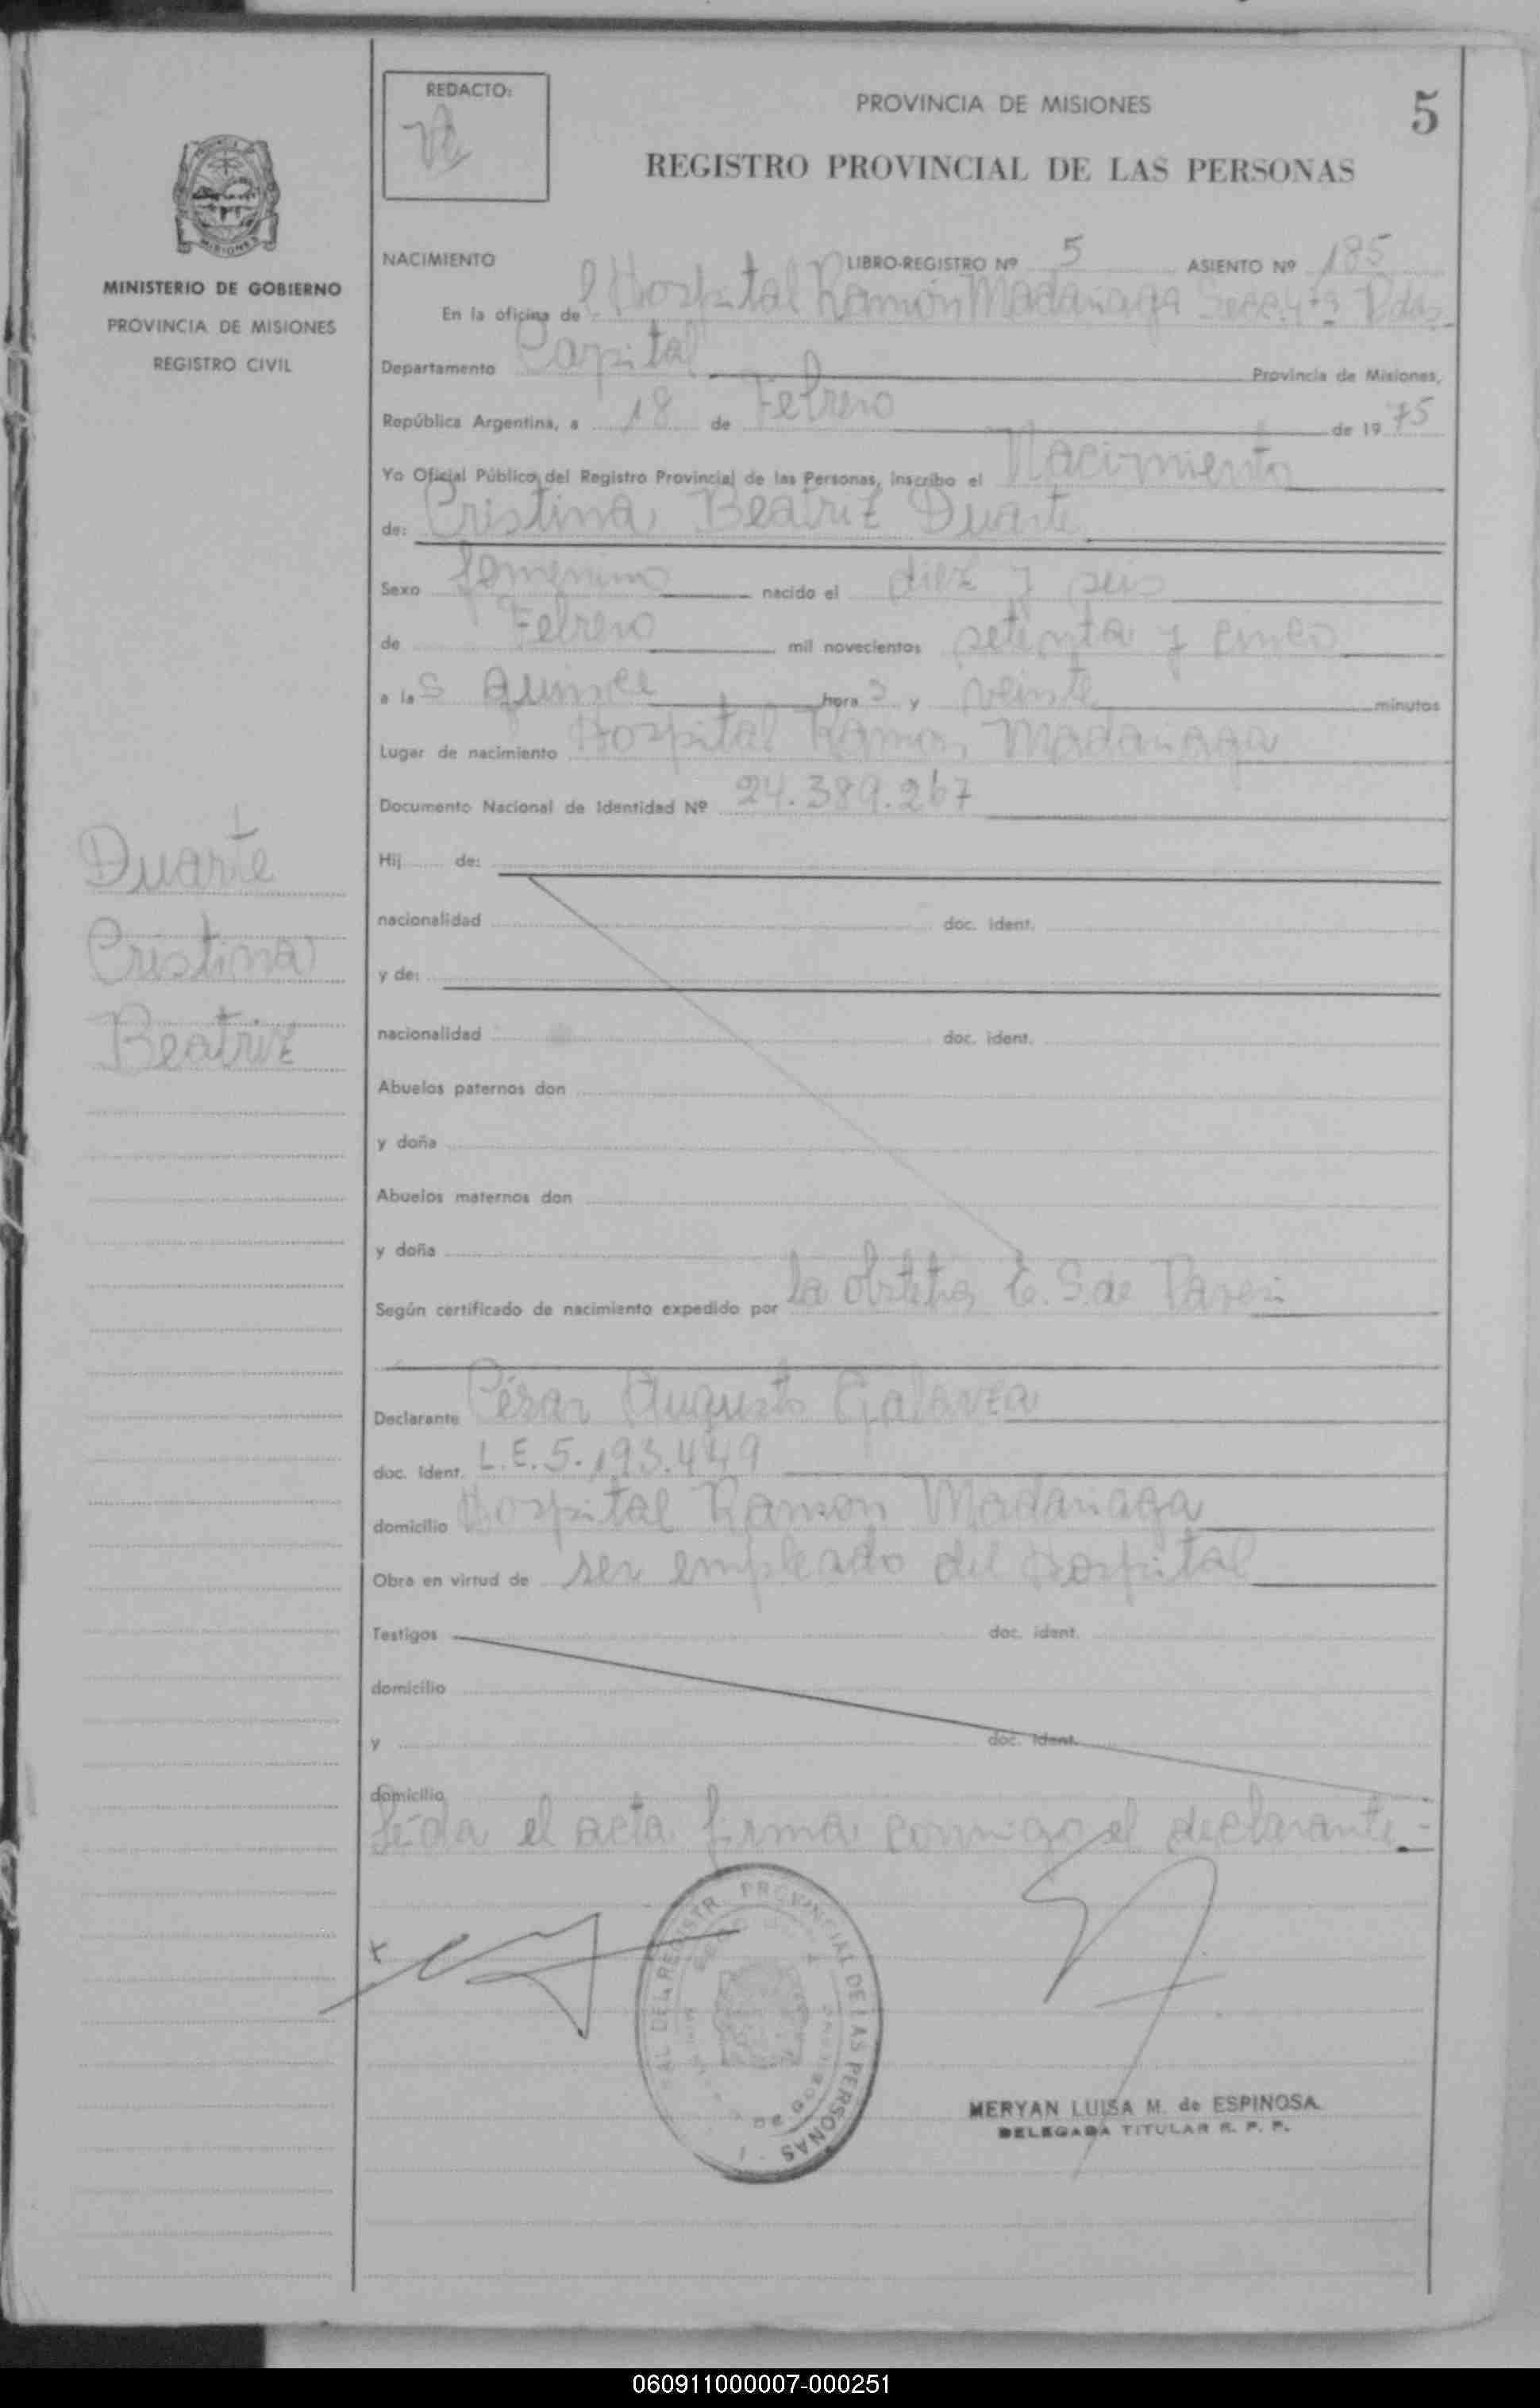 REDACTO:
PROVINCIA DE MISIONES
5
REGISTRO PROVINCIAL DE LAS PERSONAS
MISIONES
MINISTERIO DE GOBIERNO
PROVINCIA DE MISIONES
REGISTRO CIVIL
NACIMIENTO LIBRO-REGISTRO Nº 5 ASIENTO Nº 185
En la oficina de l Hospital Ramón Madariaga Secc. 4ta Pdas
Departamento Capital Provincia de Misiones,
República Argentina, a 18 de Febrero de 1975
Yo Oficial Público del Registro Provincial de las Personas, inscribo el Nacimiento
de: Cristina Beatriz Duarte
Sexo femenino nacido el diez y seis
de Febrero mil novecientos setenta y cinco
a las quince hora s y veinte minutos
Lugar de nacimiento Hospital Ramon Madariaga
Documento Nacional de Identidad Nº 24.389.267
Duarte
Cristina
Beatriz
Hij de:
nacionalidad doc. ident.
y de:
nacionalidad doc. ident.
Abuelos paternos don
y doña
Abuelos maternos don
y doña
Según certificado de nacimiento expedido por la obstetra E. S. de
Declarante César Augusto Galarza
doc. ident. L.E. 5.193.449
domicilio Hospital Ramon Madariaga
Obra en virtud de ser empleado del Hospital
Testigos doc. ident.
domicilio
y doc. ident.
domicilio
Leída el acta firma conmigo el declarante.-
DEL REGISTR PROVINCIAL DE LAS PERSONAS
MERYAN LUISA M. de ESPINOSA
DELEGADA TITULAR R. P. P.
060911000007-000251